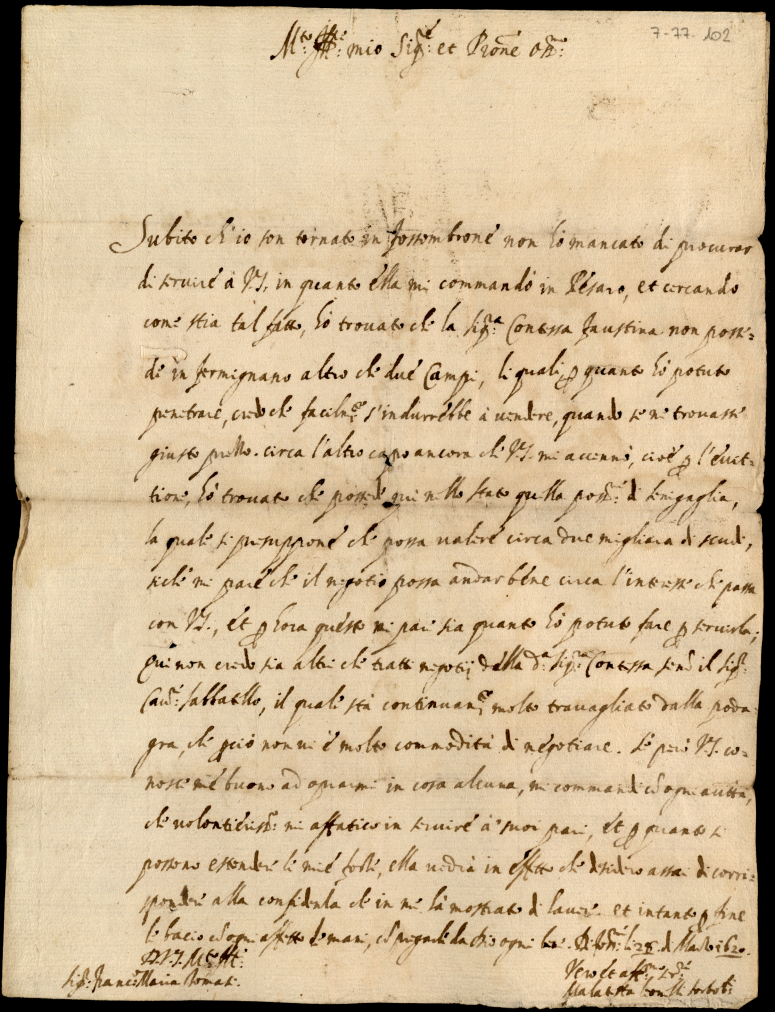 7-77. 102
M.to Ill.re mio Sig.re et P̃rone Oss.mo
Subito ch'io son tornato in Fossombrone non hò mancato di procurar
di servire à V.S. in quanto ella mi commandò in Pesaro, et cercando
come stia tal fatto, hò trovato che la Sig.ra Contessa Faustina non possie=
de in fermignano altro che due Campi, li quali, p quanto hò potuto
penetrare, credo che facilm.te s'indurrebbe à vendere, quando se ne trovasse
giusto prezzo. circa l'altro capo ancora che V.S. mi accennò, cioè p l'evit=
tione, hò trovato che possiede qui nello stato quella poss.ne di Senigaglia,
la quale si presuppone che possa valere circa due migliara di scudi,
siche mi pare che il negotio possa andar bene circa l'interesse che passa
con V.S., et p hora questo mi pare sia quanto hò potuto fare p servirla;
Qui non credo sia altri che tratti negotij della d.a Sig.ra Contessa se nõ il Sig.r
Cav.re Sabbatello, il quale stà continuam.te molto travagliato dalla poda=
gra, che p ciò non vi è molto commodità di negotiare. Se però V.S. co=
nosce mè buono ad oprarmi in cosa alcuna, mi commandi cõ ogni autt.tà,
che volontieriss.o mi affatico in servire à suoi pari, et p quanto si
possono estendere le mie forze, ella vedrà in effetto che desidero assai di corri=
spondere alla confidenza che in me hà mostrato di havere. et intanto p fine
le bacio cõ ogni affetto le mani, cõ pregarle da Dio ogni bene. Di Foss.ne li 28 di Marzo 1620.
D. V.S. M.to Ill.re
Sig.r Franc.o Maria Tomasi.
Vero et aff.mo Ser.re
Malatesta